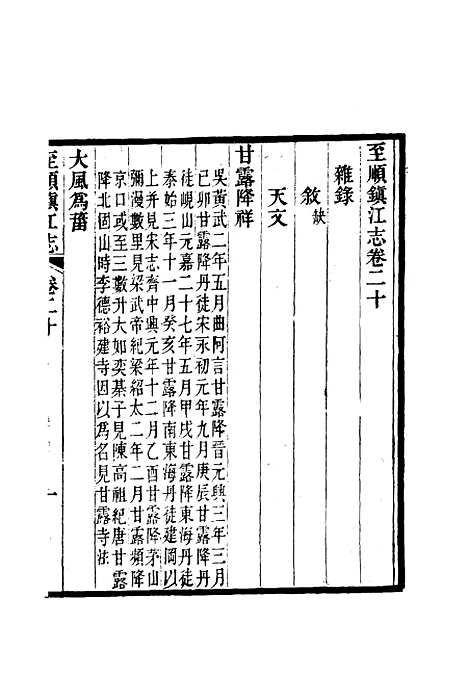 至順鎮江志卷二十
雜錄
敘缺
天文
甘露降祥
吳黃武二年五月曲阿言甘露降晉元興三年三月
已卯甘露降丹徒宋永初元年九月庚辰甘露降丹
徒峴山元嘉二十七年五月甲戌甘露降東海丹徒
泰始三年十一月癸亥甘露降南東海丹徒建岡以
上并見宋志齊中興元年十二月乙酉甘露降茅山
彌漫數里見梁武帝紀梁紹太二年二月甘露頻降
京口或至三數升大如奕棊子見陳高祖紀唐甘露
降北固山時李德裕建寺因以爲名見甘露寺注
大風爲菑
至順鎮江志 卷二十 一